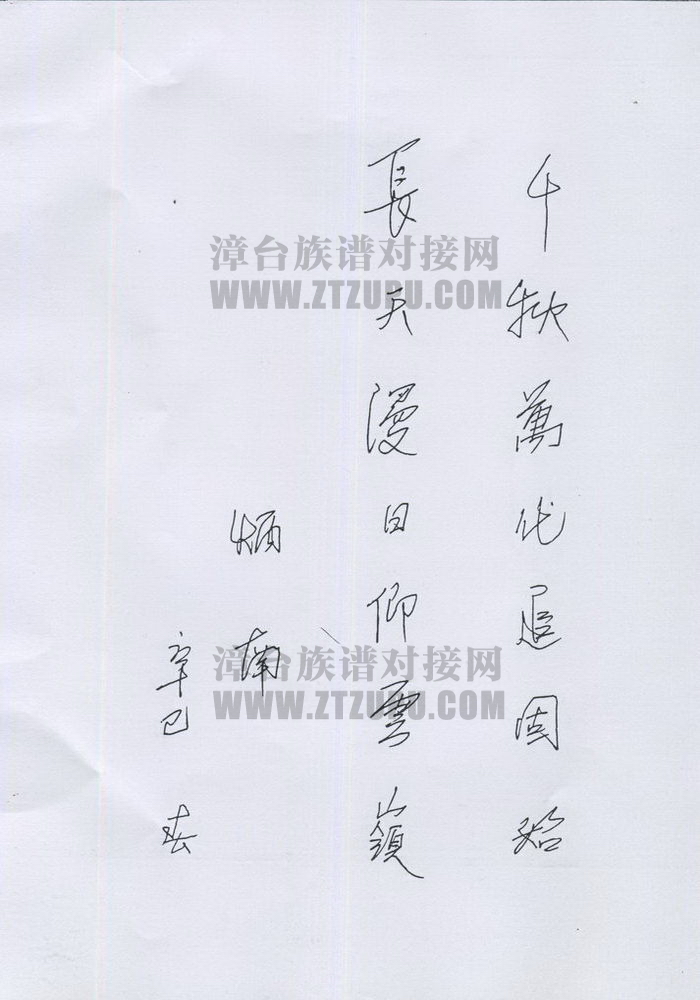 千秋萬代追固始
長天漫日仰雲嶺
炳南
辛巳春
漳台族谱对接网
WWW.ZTZUPU.COM
漳台族谱对接网
WWW.ZTZUPU.COM